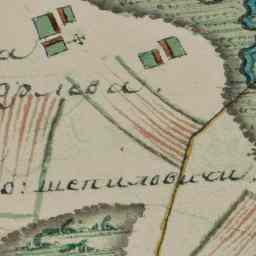 а
дрлева.
о: шепиловичи